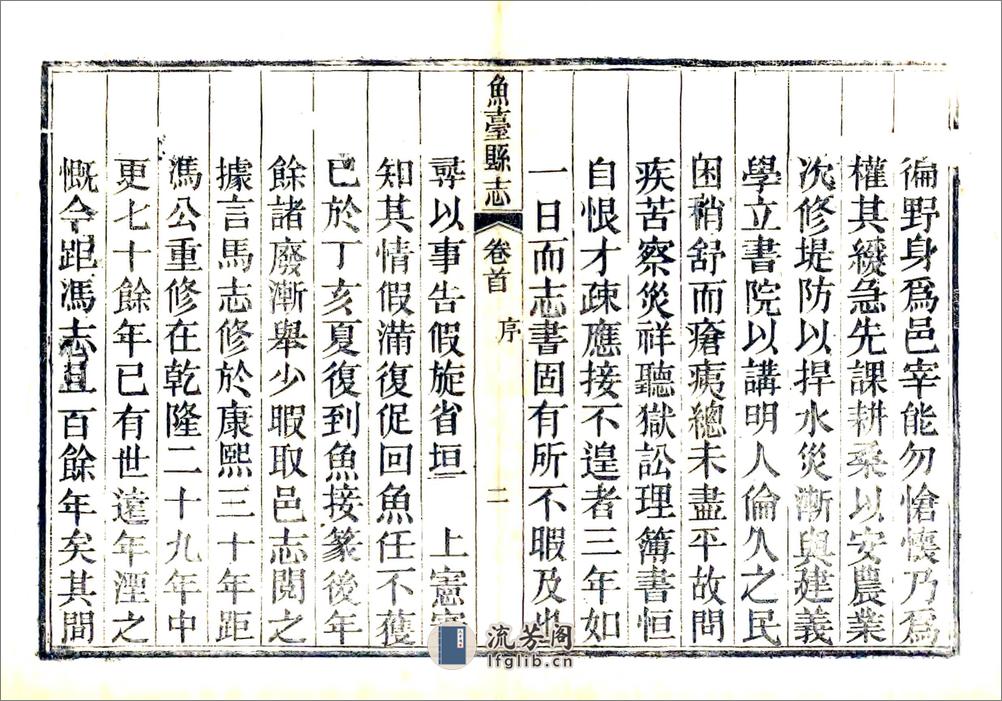 徧野身爲邑宰能勿愴懷乃爲
權其緩急先課耕桑以安農業
次修堤防以捍水災漸與建義
學立書院以講明人倫久之民
困稍舒而瘡痍總未盡平故問
疾苦察災祥聽獄訟理簿書恒
自恨才疎應接不遑者三年如
一日而志書固有所不暇及也
魚臺縣志 卷首 序 二
尋以事告假旋省垣 上憲
知其情假滿復促回魚任不獲
已於丁亥夏復到魚接篆後年
餘諸廢漸舉少暇取邑志閱之
據言馬志修於康熙三十年距
馮公重修在乾隆二十九年中
更七十餘年已有世遠年湮之
慨今距馮志且百餘年矣其間
流芳阁
lfglib.cn